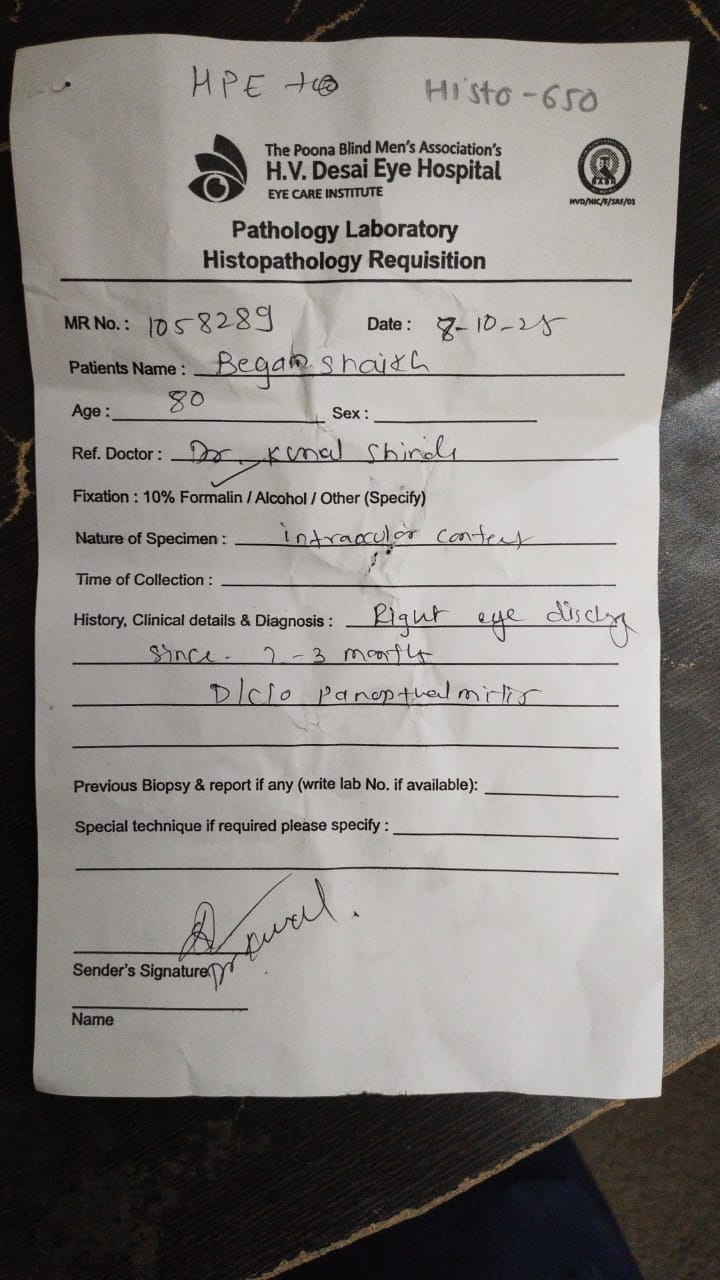 HPE
Histo-650
The Poona Blind Men's Association's
H.V. Desai Eye Hospital
EYE CARE INSTITUTE
HVD/HIC/F/SRF/01
Pathology Laboratory
Histopathology Requisition
MR No. : 1058289 Date : 8-10-25
Patients Name : Begam Shaikh
Age : 80 Sex :
Ref. Doctor : Dr. Shinde
Fixation : 10% Formalin / Alcohol / Other (Specify)
Nature of Specimen : intraoculor content
Time of Collection :
History, Clinical details & Diagnosis : Right eye
since. 2-3 months
Panopthalmitis
Previous Biopsy & report if any (write lab No. if available):
Special technique if required please specify :
Sender's Signature Dr
Name